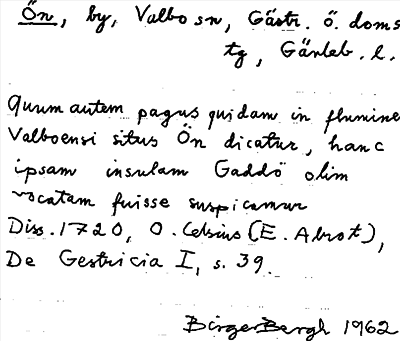 Ön, by, Valbo sn, Gästr. ö. doms
tg, Gävleb. l.
Quum autem pagus quidam in flumine
Valboensi situs Ön dicatur, hanc
ipsam insulam Gaddö olim
vocatam fuisse suspicamur
Diss. 1720, O. Celsius (E. Abrot),
De Gestricia I, s. 39.
Birger Bergh 1962